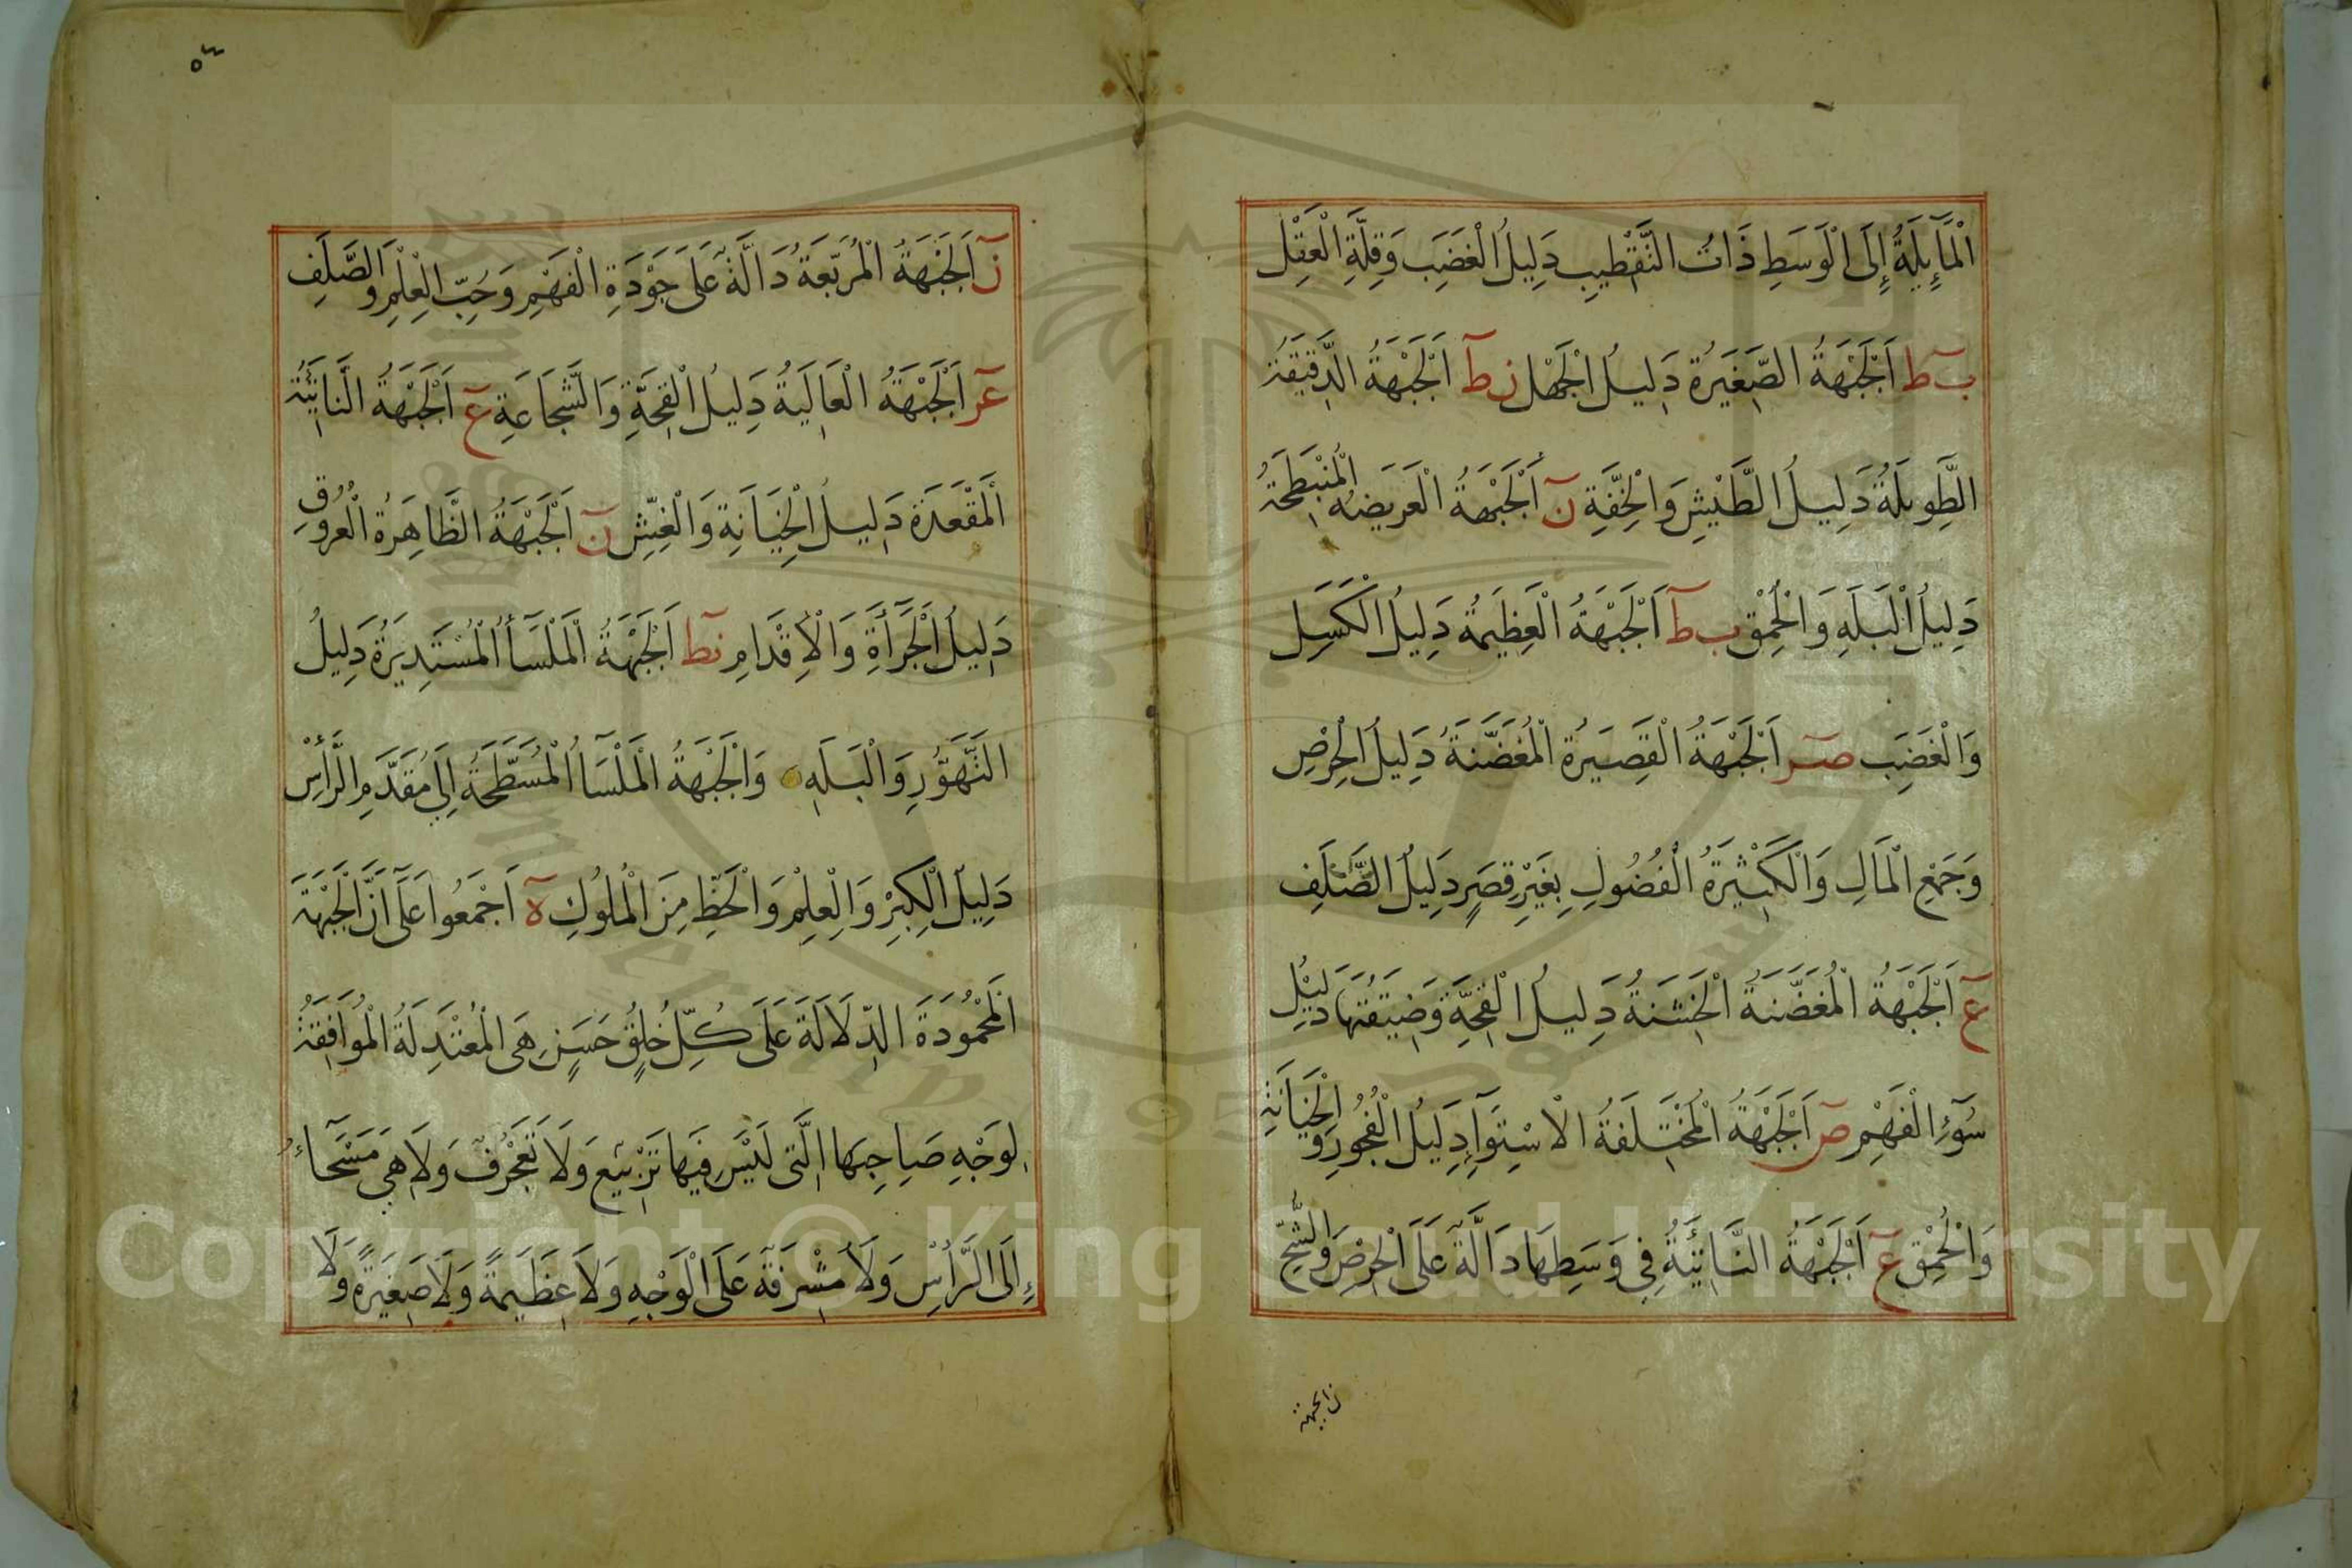 الْمَآئِلَةُ إِلَى الْوَسَطِ ذَاتُ التَّقْطِيبِ دَلِيلُ الْغَضَبِ وَقِلَّةِ الْعَقْلِ
ب ط اَلْجَبْهَةُ الصَّغِيرَةُ دَلِيلُ الْجَهْلِ ن ط اَلْجَبْهَةُ الدَّقِيقَةُ
الطَّوِيلَةُ دَلِيلُ الطَّيْشِ وَالْخِفَّةِ ن اَلْجَبْهَةُ الْعَرِيضَةُ الْمُنْبَطِحَةُ
دَلِيلُ الْبَلَهِ وَالْحُمْقِ ب ط اَلْجَبْهَةُ الْعَظِيمَةُ دَلِيلُ الْكَسَلِ
وَالْغَضَبِ صر اَلْجَبْهَةُ الْقَصِيرَةُ الْمُغَضَّنَةُ دَلِيلُ الْحِرْصِ
وَجَمْعِ الْمَالِ وَالْكَثِيرَةُ الْفُضُولِ بِغَيْرِ قِصَرٍ دَلِيلُ الصَّلَفِ
ع اَلْجَبْهَةُ الْمُغَضَّنَةُ الْخَشِنَةُ دَلِيلُ الْقِحَّةِ وَضَيِّقَتُهَا دَلِيْلُ
سُوٓءِ الْفَهْمِ ص اَلْجَبْهَةُ الْمُخْتَلِفَةُ الْاسْتِوَآءِ دَلِيلُ الْفُجُورِ وَالْخِيَانَةِ
وَالْحُمْقِ ع اَلْجَبْهَةُ النَّاتِئَةُ فِي وَسَطِهَا دَالَّةٌ عَلَى الْحِرْصِ وَالشُّحِّ
ن الجبهة
٥٤
ن اَلْجَبْهَةُ الْمُرَبَّعَةُ دَالَّةٌ عَلَى جَوْدَةِ الْفَهْمِ وَحُبِّ الْعِلْمِ وَالصَّلَفِ
عر اَلْجَبْهَةُ الْعَالِيَةُ دَلِيلُ الْقِحَّةِ وَالشَّجَاعَةِ ع اَلْجَبْهَةُ النَّاتِئَةُ
الْمُقْعَدَةُ دَلِيلُ الْخِيَانَةِ وَالْغِشِّ ن اَلْجَبْهَةُ الظَّاهِرَةُ الْعُرُوقِ
دَلِيلُ الْجَرَأَةِ وَالْاِقْدَامِ نط اَلْجَبْهَةُ الْمَلْسَآءُ الْمُسْتَدِيرَةُ دَلِيلُ
التَّهَوُّرِ وَالْبَلَهِ وَالْجَبْهَةُ الْمَلْسَاءُ الْمُسَطَّحَةُ اِلَى مُقَدَّمِ الرَّأْسِ
دَلِيلُ الْكِبْرِ وَالْعِلْمِ وَالْحَظِّ مِنَ الْمُلُوكِ ه اَجْمَعُوا عَلَى اَنَّ الْجَبْهَةَ
الْمَحْمُودَةَ الدَّلَالَةَ عَلَى كُلِّ خُلُقٍ حَسَنٍ هِيَ الْمُعْتَدِلَةُ الْمُوَافِقَةُ
لِوَجْهِ صَاحِبِهَا الَّتِي لَيْسَ فِيهَا تَرْبِيْعٌ وَلَا تَعَجْرُفٌ وَلَا هِيَ مَسْحَآءُ
إِلَى الرَّأْسِ وَلَا مُشْرِفَةً عَلَى الْوَجْهِ وَلَا عَظِيمَةً وَلَا صَغِيرَةً وَلَا
Copyright © King Saud University